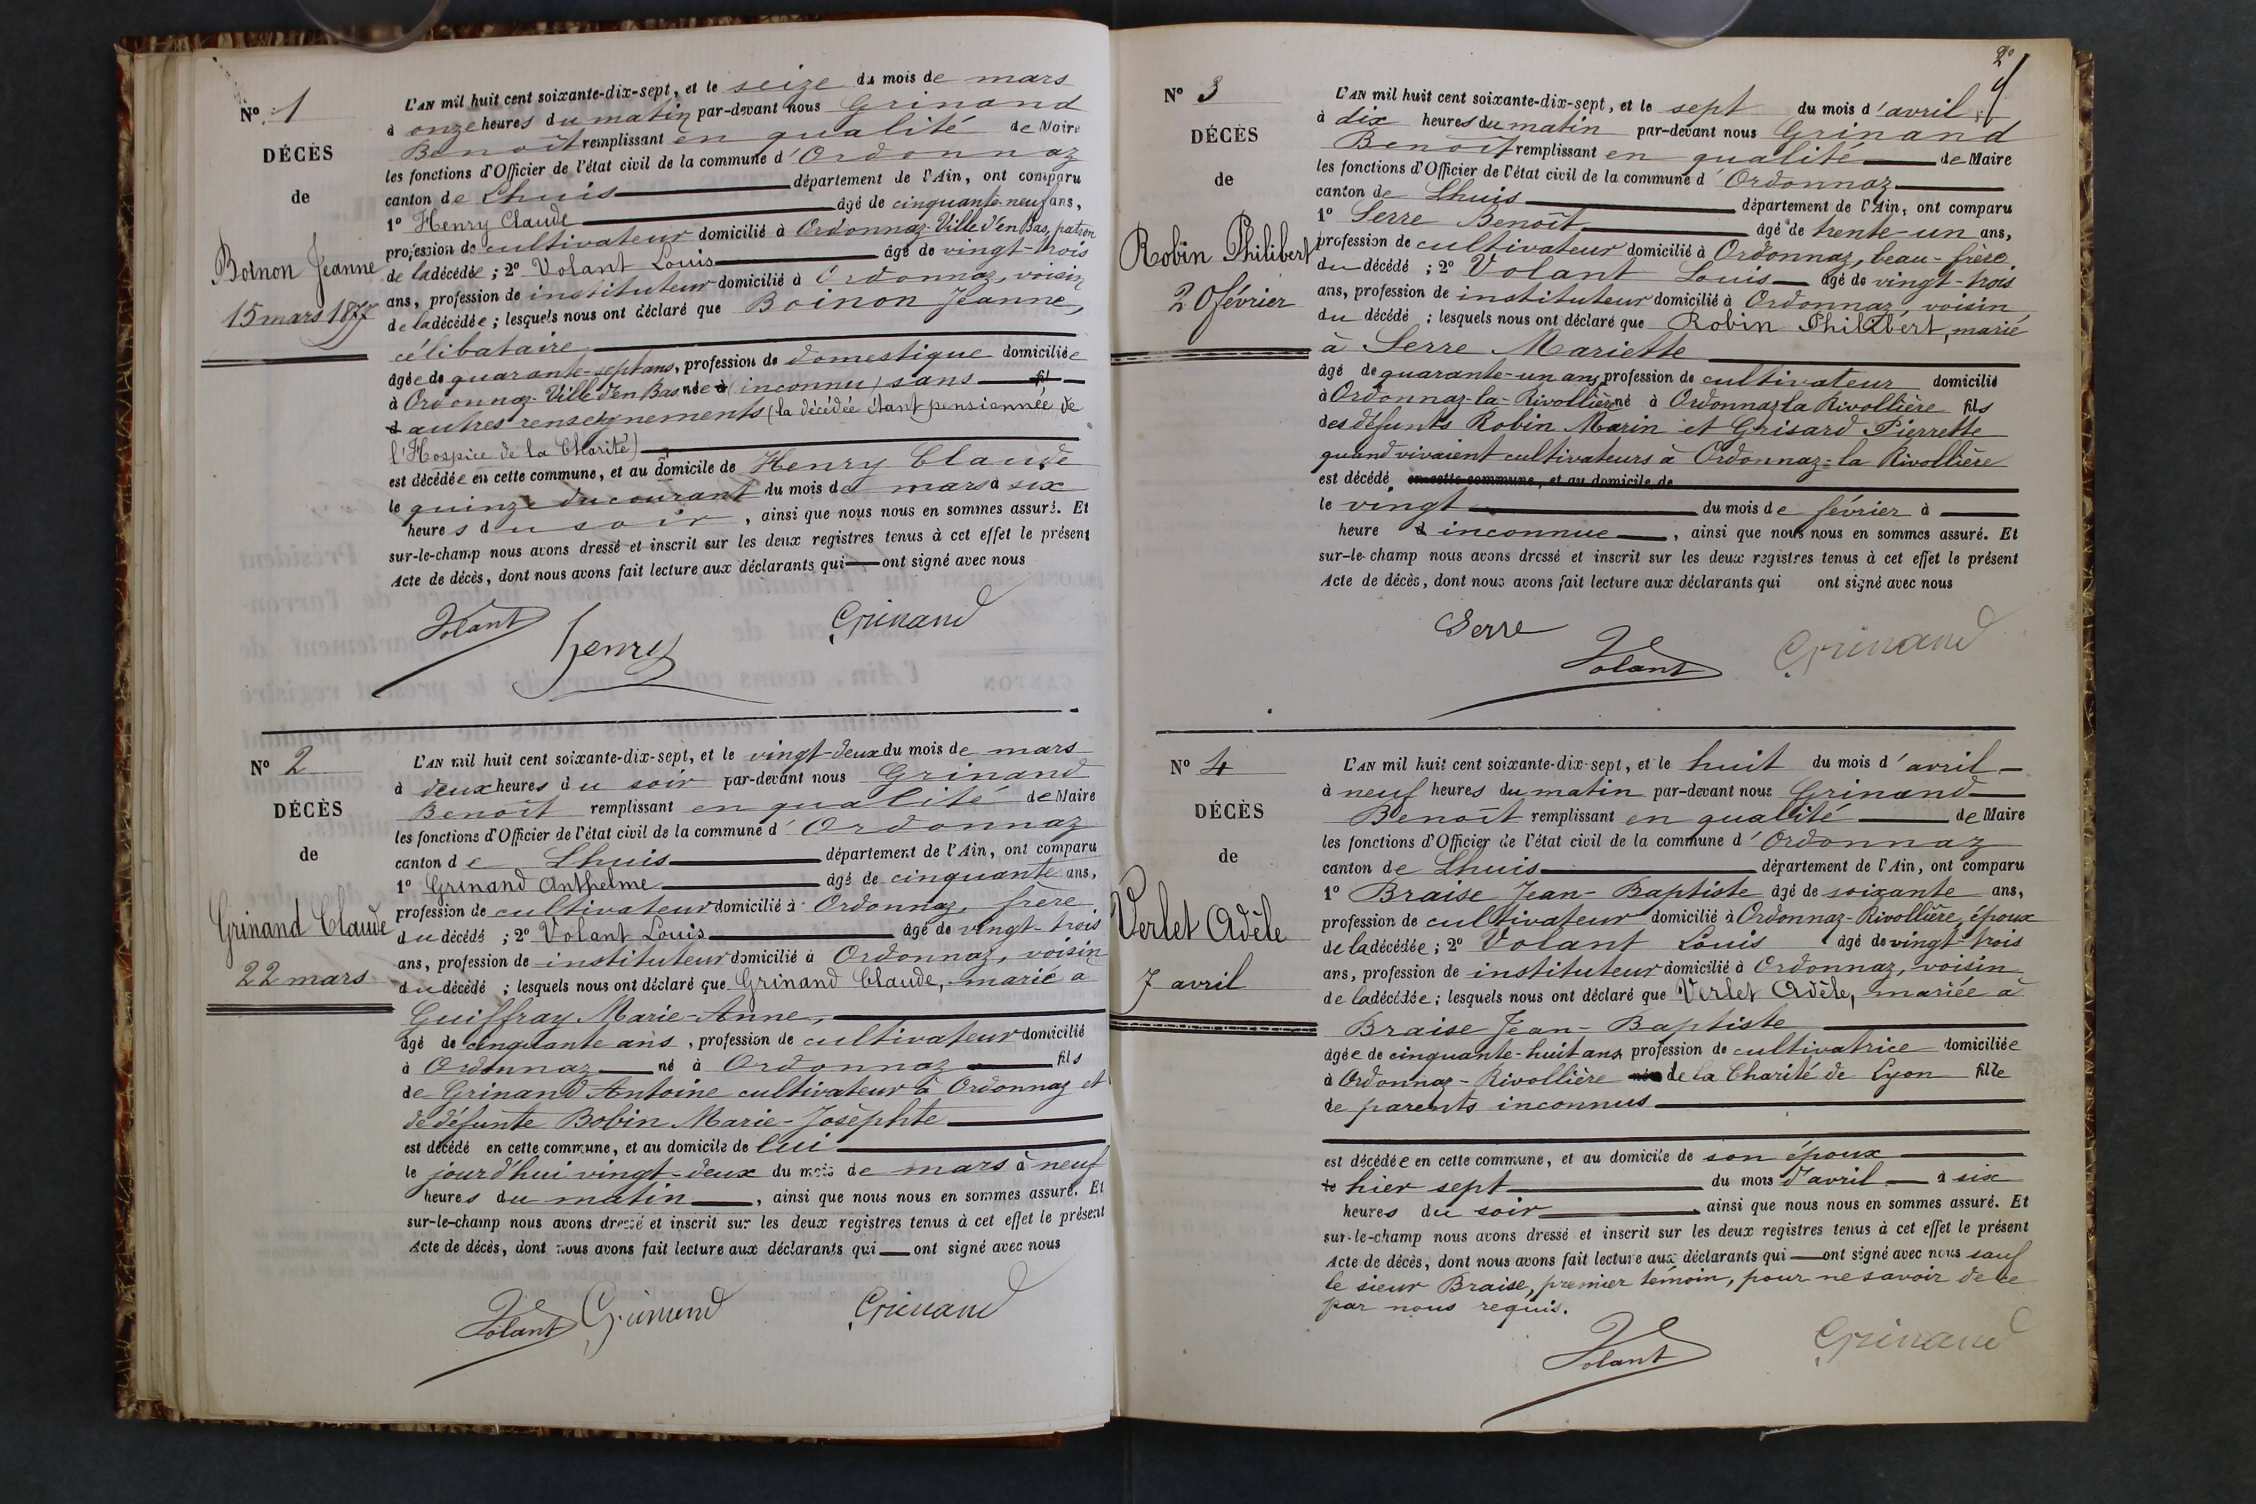 Nº 1
DÉCÈS
de
Boinon Jeanne
15 mars 1877
L'AN mil huit cent soixante-dix-sept, et le seize du mois de mars
à onze heures du matin par-devant nous Grinand
Benoît remplissant en qualité de Maire
les fonctions d'Officier de l'état civil de la commune d'Ordonnaz
canton de Lhuis département de l'Ain, ont comparu
1º Henry Claude âgé de cinquante-neuf ans,
profession de cultivateur domicilié à Ordonnaz-Ville d'en Bas, patron
de la décédée ; 2º Volant Louis âgé de vingt-trois
ans, profession de instituteur domicilié à Ordonnaz, voisin
de la décédée ; lesquels nous ont déclaré que Boinon Jeanne,
célibataire
âgée de quarante-sept ans, profession de domestique domiciliée
à Ordonnaz-Ville d'en Bas née à (inconnu) sans fil
d autres renseignements (la décédée étant pensionnée de
l'Hospice de la Charité)
est décédée en cette commune, et au domicile de Henry Claude
le quinze du courant du mois de mars à six
heures du soir, ainsi que nous nous en sommes assuré. Et
sur-le-champ nous avons dressé et inscrit sur les deux registres tenus à cet effet le présent
Acte de décès, dont nous avons fait lecture aux déclarants qui ont signé avec nous
Volant Henry Grinand
Nº 2
DÉCÈS
de
Grinand Claude
22 mars
L'AN mil huit cent soixante-dix-sept, et le vingt-deux du mois de mars
à deux heures du soir par-devant nous Grinand
Benoît remplissant en qualité de Maire
les fonctions d'Officier de l'état civil de la commune d'Ordonnaz
canton de Lhuis département de l'Ain, ont comparu
1º Grinand Anthelme âgé de cinquante ans,
profession de cultivateur domicilié à Ordonnaz, frère
du décédé ; 2º Volant Louis âgé de vingt-trois
ans, profession de instituteur domicilié à Ordonnaz, voisin
du décédé ; lesquels nous ont déclaré que Grinand Claude, marié à
Guiffray Marie-Anne,
âgé de cinquante ans, profession de cultivateur domicilié
à Ordonnaz né à Ordonnaz fils
de Grinand Antoine cultivateur à Ordonnaz et
de défunte Bobin Marie-Josèphte
est décédé en cette commune, et au domicile de lui
le jourd'hui vingt-deux du mois de mars à neuf
heures du matin, ainsi que nous nous en sommes assuré. Et
sur-le-champ nous avons dressé et inscrit sur les deux registres tenus à cet effet le présent
Acte de décès, dont nous avons fait lecture aux déclarants qui ont signé avec nous
Volant Grinand Grinand
2º
Nº 3
DÉCÈS
de
Robin Philibert
20 février
L'AN mil huit cent soixante-dix-sept, et le sept du mois d'avril
à dix heures du matin par-devant nous Grinand
Benoît remplissant en qualité de Maire
les fonctions d'Officier de l'état civil de la commune d'Ordonnaz
canton de Lhuis département de l'Ain, ont comparu
1º Serre Benoît âgé de trente-un ans,
profession de cultivateur domicilié à Ordonnaz, beau-frère
du décédé ; 2º Volant Louis âgé de vingt-trois
ans, profession de instituteur domicilié à Ordonnaz, voisin
du décédé ; lesquels nous ont déclaré que Robin Philibert, marié
à Serre Mariette
âgé de quarante-un ans, profession de cultivateur domicilié
à Ordonnaz-la-Rivollière né à Ordonnaz la Rivollière fils
des défunts Robin Marin et Grisard Pierrette
quand vivaient cultivateurs à Ordonnaz-la Rivollière
est décédé en cette commune, et au domicile de
le vingt du mois de février à
heure d inconnue, ainsi que nous nous en sommes assuré. Et
sur-le-champ nous avons dressé et inscrit sur les deux registres tenus à cet effet le présent
Acte de décès, dont nous avons fait lecture aux déclarants qui ont signé avec nous
Serre Volant Grinand
Nº 4
DÉCÈS
de
Verlet Adèle
7 avril
L'AN mil huit cent soixante-dix-sept, et le huit du mois d'avril
à neuf heures du matin par-devant nous Grinand
Benoît remplissant en qualité de Maire
les fonctions d'Officier de l'état civil de la commune d'Ordonnaz
canton de Lhuis département de l'Ain, ont comparu
1º Braise Jean-Baptiste âgé de soixante ans,
profession de cultivateur domicilié à Ordonnaz-Rivollière, époux
de la décédée ; 2º Volant Louis âgé de vingt-trois
ans, profession de instituteur domicilié à Ordonnaz, voisin
de la décédée ; lesquels nous ont déclaré que Verlet Adèle, mariée à
Braise Jean-Baptiste
âgée de cinquante-huit ans, profession de cultivatrice domiciliée
à Ordonnaz-Rivollière née de la Charité de Lyon fille
de parents inconnus
est décédée en cette commune, et au domicile de son époux
le hier sept du mois d'avril à six
heures du soir ainsi que nous nous en sommes assuré. Et
sur-le-champ nous avons dressé et inscrit sur les deux registres tenus à cet effet le présent
Acte de décès, dont nous avons fait lecture aux déclarants qui ont signé avec nous sauf
le sieur Braise, premier témoin, pour ne savoir de ce
par nous requis.
Volant Grinand